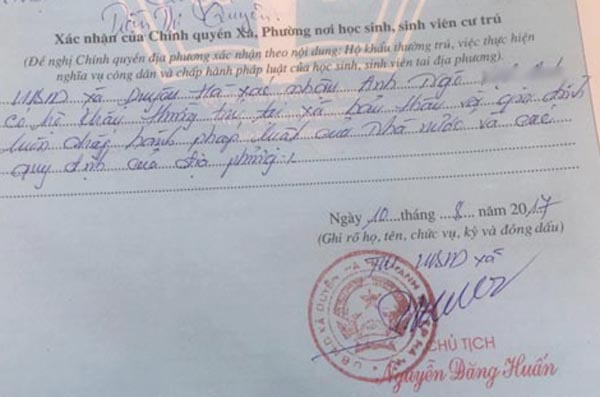 Trần Thị Quyên.
Xác nhận của Chính quyền Xã, Phường nơi học sinh, sinh viên cư trú
(Đề nghị Chính quyền địa phương xác nhận theo nội dung: Hộ khẩu thường trú, việc thực hiện
nghĩa vụ công dân và chấp hành pháp luật của học sinh, sinh viên tai địa phương).
UBND xã Duyên Hà xác nhận Anh Ngô
có hộ khẩu thường trú tại xã, bản thân và gia đình
luôn chấp hành pháp luật của Nhà nước và các
quy định của địa phương./.
Ngày 10 tháng 8 năm 2017
(Ghi rõ họ, tên, chức vụ, ký và đóng dấu)
TM UBND xã
U.B.N.D XÃ DUYÊN HÀ
CHỦ TỊCH
Nguyễn Đăng Huấn